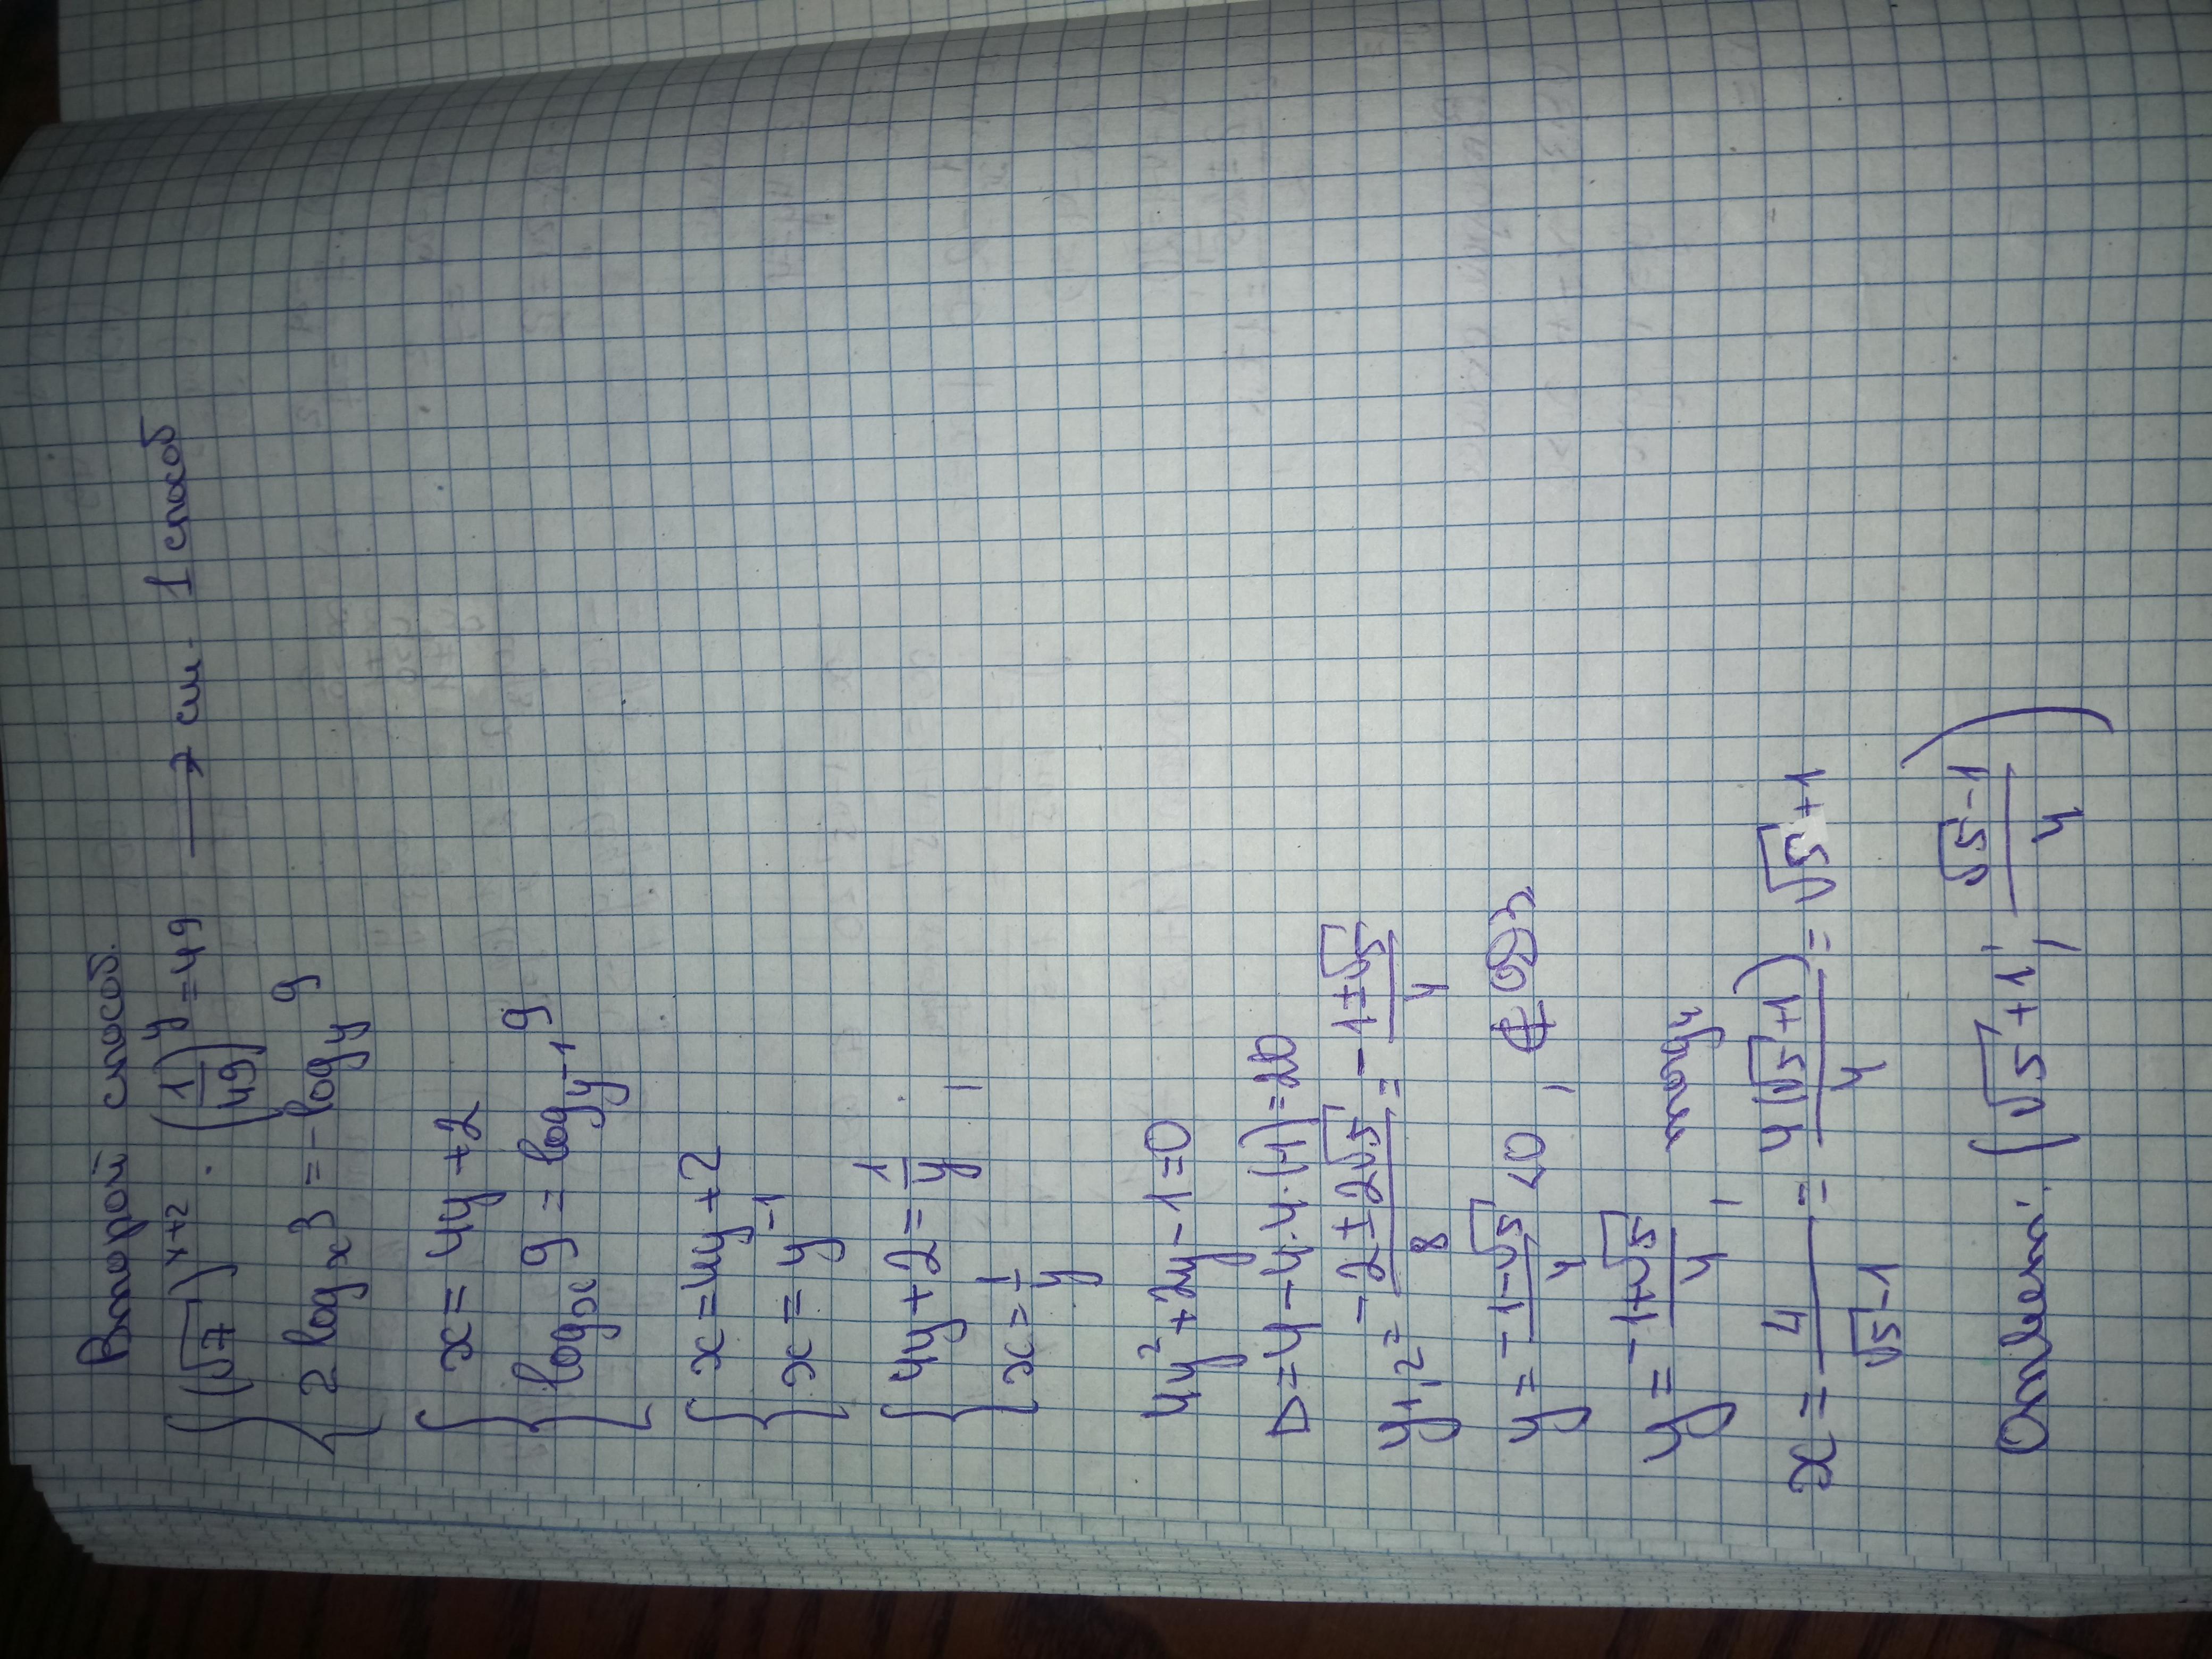 Второй способ.
{ (√7)^(x+2) · (1/49)^y = 49 → см. 1 способ
2 log_x 3 = - log_y 9
{ x = 4y + 2
log_x 9 = log_(y^-1) 9
{ x = 4y + 2
x = y^-1
{ 4y + 2 = 1/y ,
x = 1/y
4y² + 2y - 1 = 0
D = 4 - 4·4·(-1) = 20
y1,2 = (-2 ± 2√5)/8 = (-1 ± √5)/4
y = (-1-√5)/4 < 0 , ∉ ОДЗ
y = (-1+√5)/4 , тогда
x = 4/(√5-1) = 4(√5+1)/4 = √5+1
Ответ: (√5+1; (√5-1)/4)